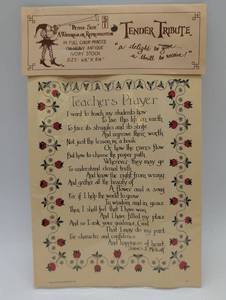 TENDER TRIBUTE
"a delight to give
a thrill to receive!"
IN FULL COLOR PRINTED
ANTIQUE
IVORY STOCK
SIZE:
Teacher's Prayer
I want to teach my students how
To live this life on earth,
To face its struggles and its strife
And improve their worth.
Not just the lesson in a book
Or how the rivers flow
But how to choose the proper path
Wherever they may go
To understand eternal truth
And know the right from wrong
And gather all the beauty of
A flower and a song
For if I help the world to grow
In wisdom and in grace
Then I shall feel that I have won
And I have filled my place
And so I ask your guidance, God
That I may do my part
For character and confidence
And happiness of heart
James J. Metcalf